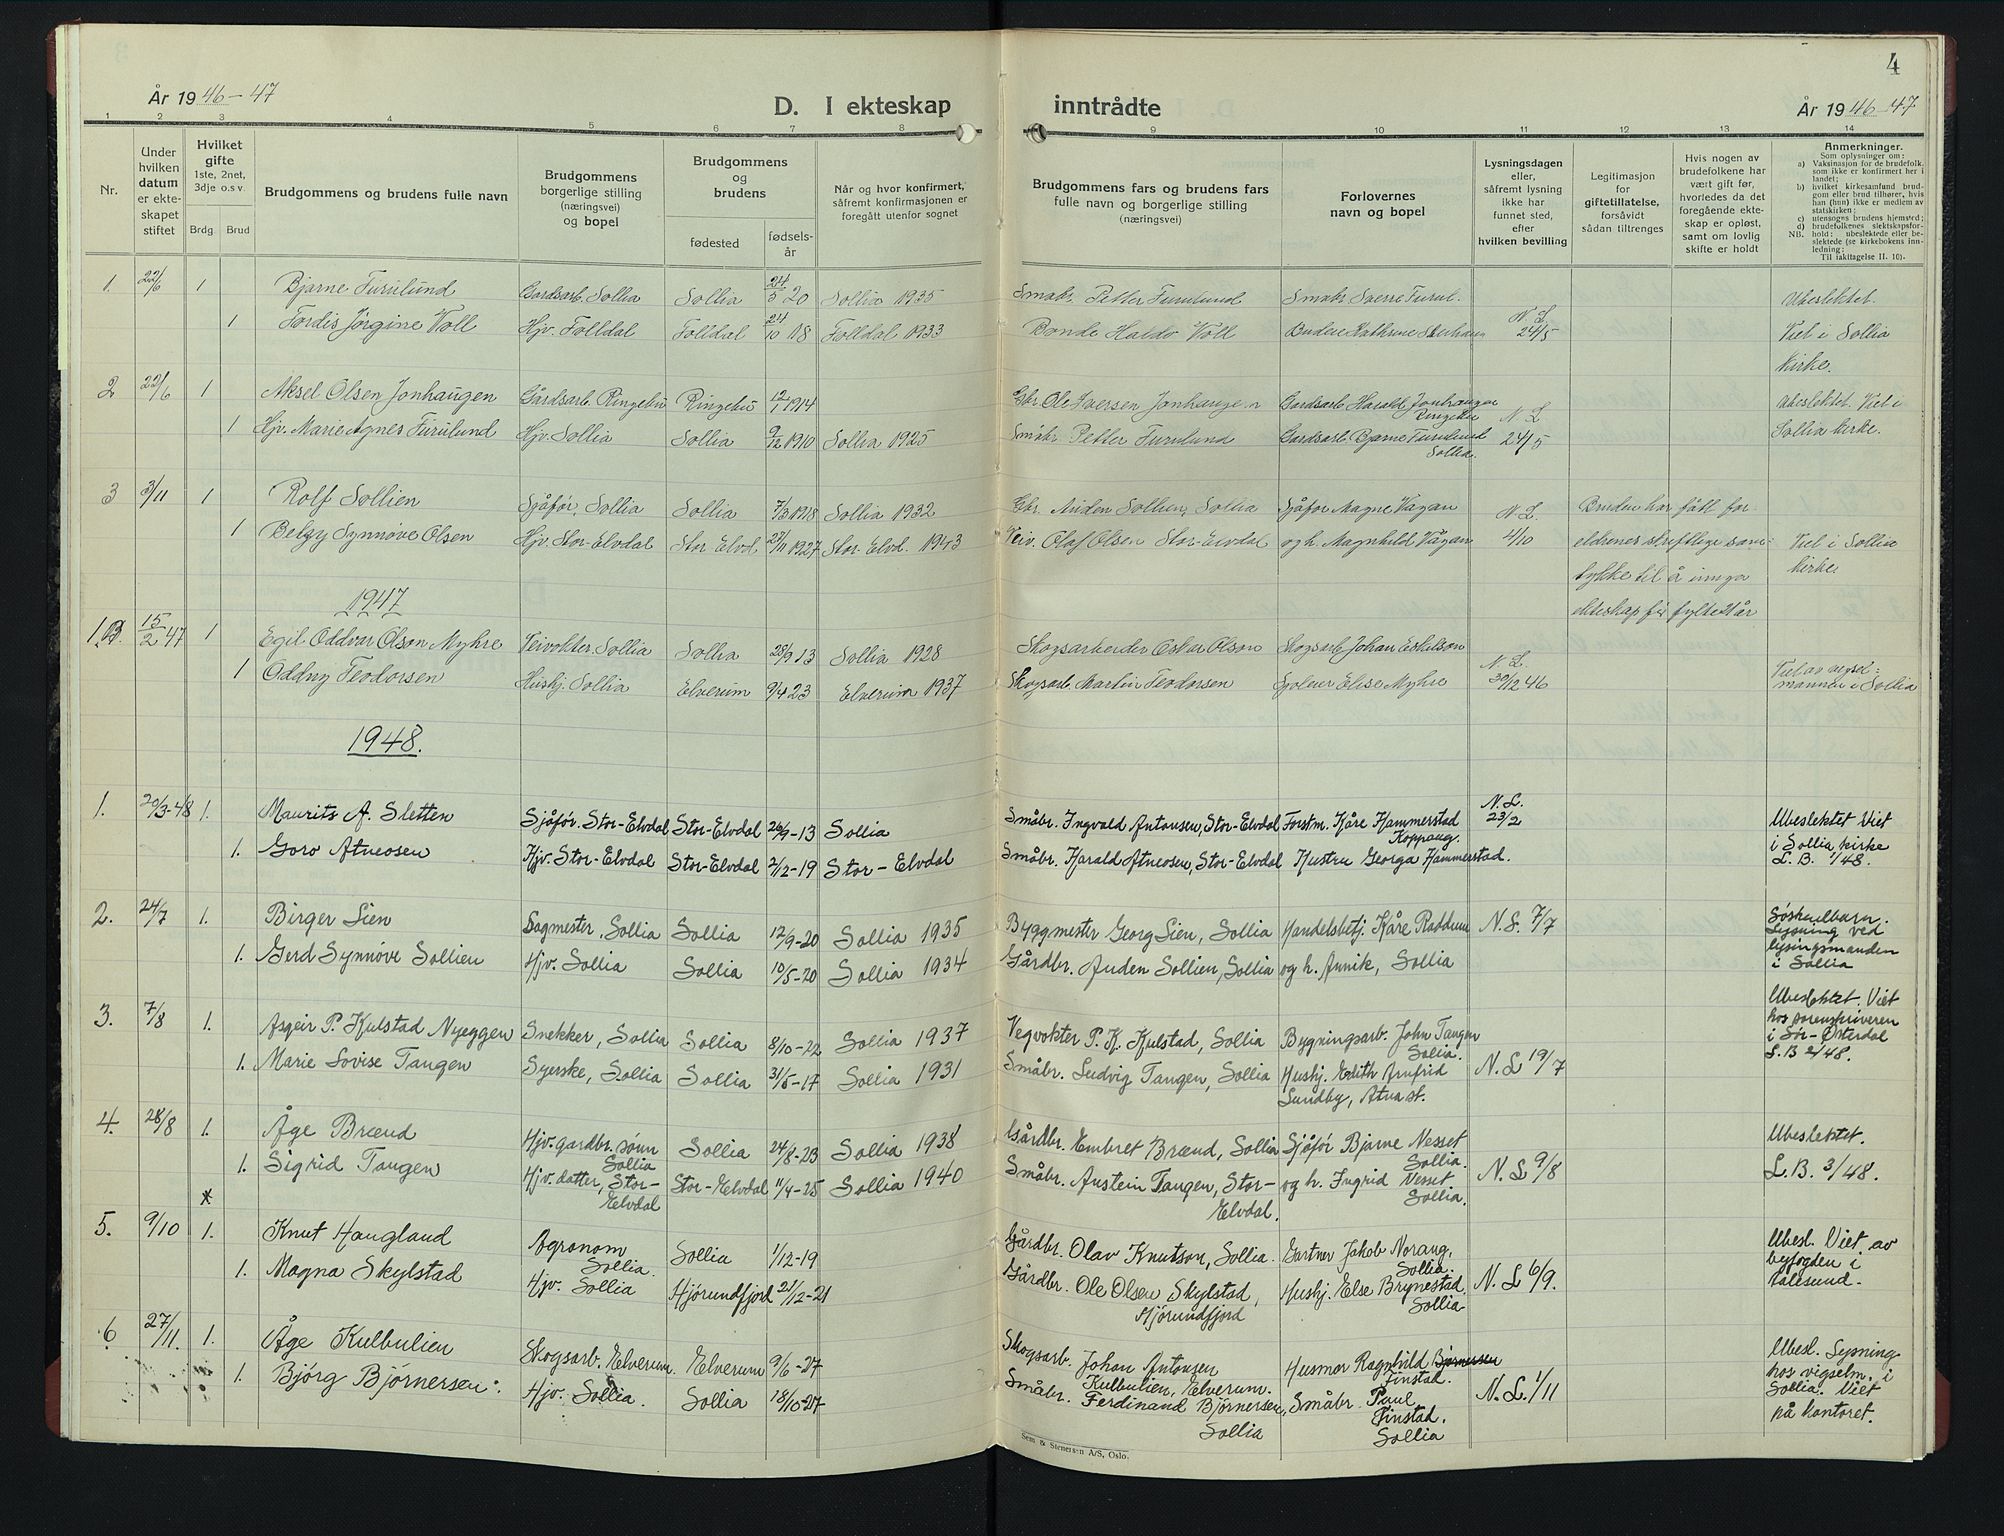 4
År 1946-47
D. I ekteskap inntrådte
År 1946-47
1 2 3 4 5 6 7 8 9 10 11 12 13 14
Nr.
Under hvilken datum er ekteskapet stiftet
Hvilket gifte 1ste, 2net, 3dje o.s.v.
Brdg. Brud
Brudgommens og brudens fulle navn
Brudgommens borgerlige stilling (næringsvei) og bopel
Brudgommens og brudens
fødested
fødsels-år
Når og hvor konfirmert, såfremt konfirmasjonen er foregått utenfor sognet
Brudgommens fars og brudens fars fulle navn og borgerlige stilling (næringsvei)
Forlovernes navn og bopel
Lysningsdagen eller, såfremt lysning ikke har funnet sted, efter hvilken bevilling
Legitimasjon for giftetillatelse, forsåvidt sådan tiltrenges
Hvis nogen av brudefolkene har vært gift før, hvorledes da det foregående ekteskap er opløst, samt om lovlig skifte er holdt
Anmerkninger.
Som oplysninger om:
a) Vaksinasjon for de brudefolk, som ikke er konfirmert her i landet;
b) hvilket kirkesamfund brudgom eller brud tilhører, hvis han (hun) ikke er medlem av statskirken;
c) utensogns brudens hjemsted;
d) brudefolkenes slektskapsforhold: ubeslektede eller beslektede (se kirkebokens innledning;
NB. Til iakttagelse II. 10).
1. 22/6 1 Bjarne Furulund Gardsarb. Sollia Sollia 24/5 20 Sollia 1935 Småbr. Petter Furulund Småbr Sverre Furul. Ubeslektet.
1 Tordis Jørgine Voll Hjv. Folldal Folldal 24/10 18 Folldal 1933 Bonde Haldo Voll Budeie Kathrine N.L. 24/5 Viet i Sollia
kirke.
2 22/6 1 Aksel Olsen Jonhaugen Gårdsarb. Ringebu Ringebu 12/1 1914 Gbr. Ole Iversen Jonhaugen Gardsarb Harald Jonhaugen Ringebu Ubeslektet. Viet i
1 Hjv. Marie Agnes Furulund Hjv. Sollia Sollia 9/12 1910 Sollia 1925 Småbr. Petter Furulund Gardsarb. Bjarne Furulund Sollia. N L 24/5 Sollia kirke.
3 3/11 1 Rolf Sollien Sjåfør, Sollia Sollia 7/3 1918 Sollia 1932 Gbr. Auden Sollien, Sollia Sjåfør Magne Vågan Bruden har fått for-
1 Belgy Synnøve Olsen Hjv. Stor-Elvdal Stor Elvd. 27/11 1927 Stor. Elvd. 1943 Veiv. Olaf Olsen Stor-Elvdal og h. Magnhild Vågan N.L. 4/10 eldrenes skriftlige sam- Viet i Sollia
tykke til å inngå kirke
1947 ekteskap før fylte 21 år
1. 15/2 47 1 Egil Oddvar Olson Myhre Veivokter. Sollia Sollia 28/9 13 Sollia 1928 Skogsarbeider Oskar Olson Skogsarb Johan Eskilson
1 Oddny Teodorsen Hushj. Sollia Elverum 9/4 23 Elverum 1937 Skogsarb. Martin Teodorsen Elise Myhre N.L. 30/12 46 Viet av vigsel-
mannen i Sollia
1948.
1. 20/3-48 1. Maurits A. Sletten Sjåfør. Stor-Elvdal Stor-Elvdal 26/9-13 Sollia Småbr. Ingvald Antonsen, Stor-Elvdal Forstm. Kåre Hammerstad Koppang. N.L. 23/2 Ubeslektet Viet
1. Goro Atneosen Hjv. Stor-Elvdal Stor-Elvdal 2/12-19 Stor-Elvdal Småbr. Harald Atneosen, Stor-Elvdal Hustru Georga Hammerstad. i Sollia kirke
L.B. 1/48.
2. 24/7 1. Birger Lien Sagmester, Sollia Sollia 12/9-20 Sollia 1935 Byggmester Georg Lien, Sollia Handelsbetj. Kåre Raddum N.L. 7/7 Søskenbarn.
1. Gerd Synnøve Sollien Hjv. Sollia Sollia 10/5-20 Sollia 1934 Gårdbr. Auden Sollien, Sollia og h. Annik, Sollia Lysning ved
lysingsmanden
i Sollia
3. 7/8 1. Asgeir P. Kulstad Nyeggen Snekker, Sollia Sollia 8/10-22 Sollia 1937 Vegvokter P. K. Kulstad, Sollia Bygningsarb. John Tangen Sollia. Ubeslektet. Viet
hos sorenskriveren
1. Marie Lovise Tangen Syerske, Sollia Sollia 31/5-17 Sollia 1931 Småbr. Ludvig Tangen, Sollia Hushj. Edith Arnfrid N.L 19/7 i Sør-Østerdal
Sundby, Atna st. L.B 2/48.
4. 28/8 1. Åge Brænd Hjv. gardbr. sønn Sollia Sollia 24/8-23 Sollia 1938 Gårdbr. Embret Brænd, Sollia Sjåfør Bjarne Nesset Sollia. Ubeslektet.
1. Sigrid Tangen Hjv. datter, Stor-Elvdal Stor-Elvdal 11/4-25 Sollia 1940 Småbr. Austein Tangen, Stor-Elvdal. og h. Ingrid Nesset Sollia. N.L 9/8 L.B. 3/48.
5. 9/10 1. Knut Haugland Agronom Sollia. Sollia 1/12-19 Gårdbr. Olav Knutson, Sollia. Gartner Jakob Norang, Sollia. Ubesl. Viet av
1. Magna Skylstad Hjv. Sollia Hjørundfjord 21/12-21 Gårdbr. Ole Olsen Skylstad, Hjørundfjord Hushj. Else Brynestad, Sollia N.L 6/9. byfogden i
Ålesund.
6 27/11. 1. Åge Kulbulien Skogsarb. Elverum. Elverum 9/6-27 Skogsarb. Johan Antonsen Kulbulien, Elverum. Husmor Ragnhild Bjørnersen Finstad. Ubesl. Lysning
1. Bjørg Bjørnersen. Hjv. Sollia. Sollia 18/10-27 Småbr. Ferdinand Bjørnersen, Sollia Småbr. Paul Finstad. Sollia N.L. 1/11 hos vigselm. i
Sollia. Viet
på kontoret.
Sem & Stenersen A/S, Oslo.